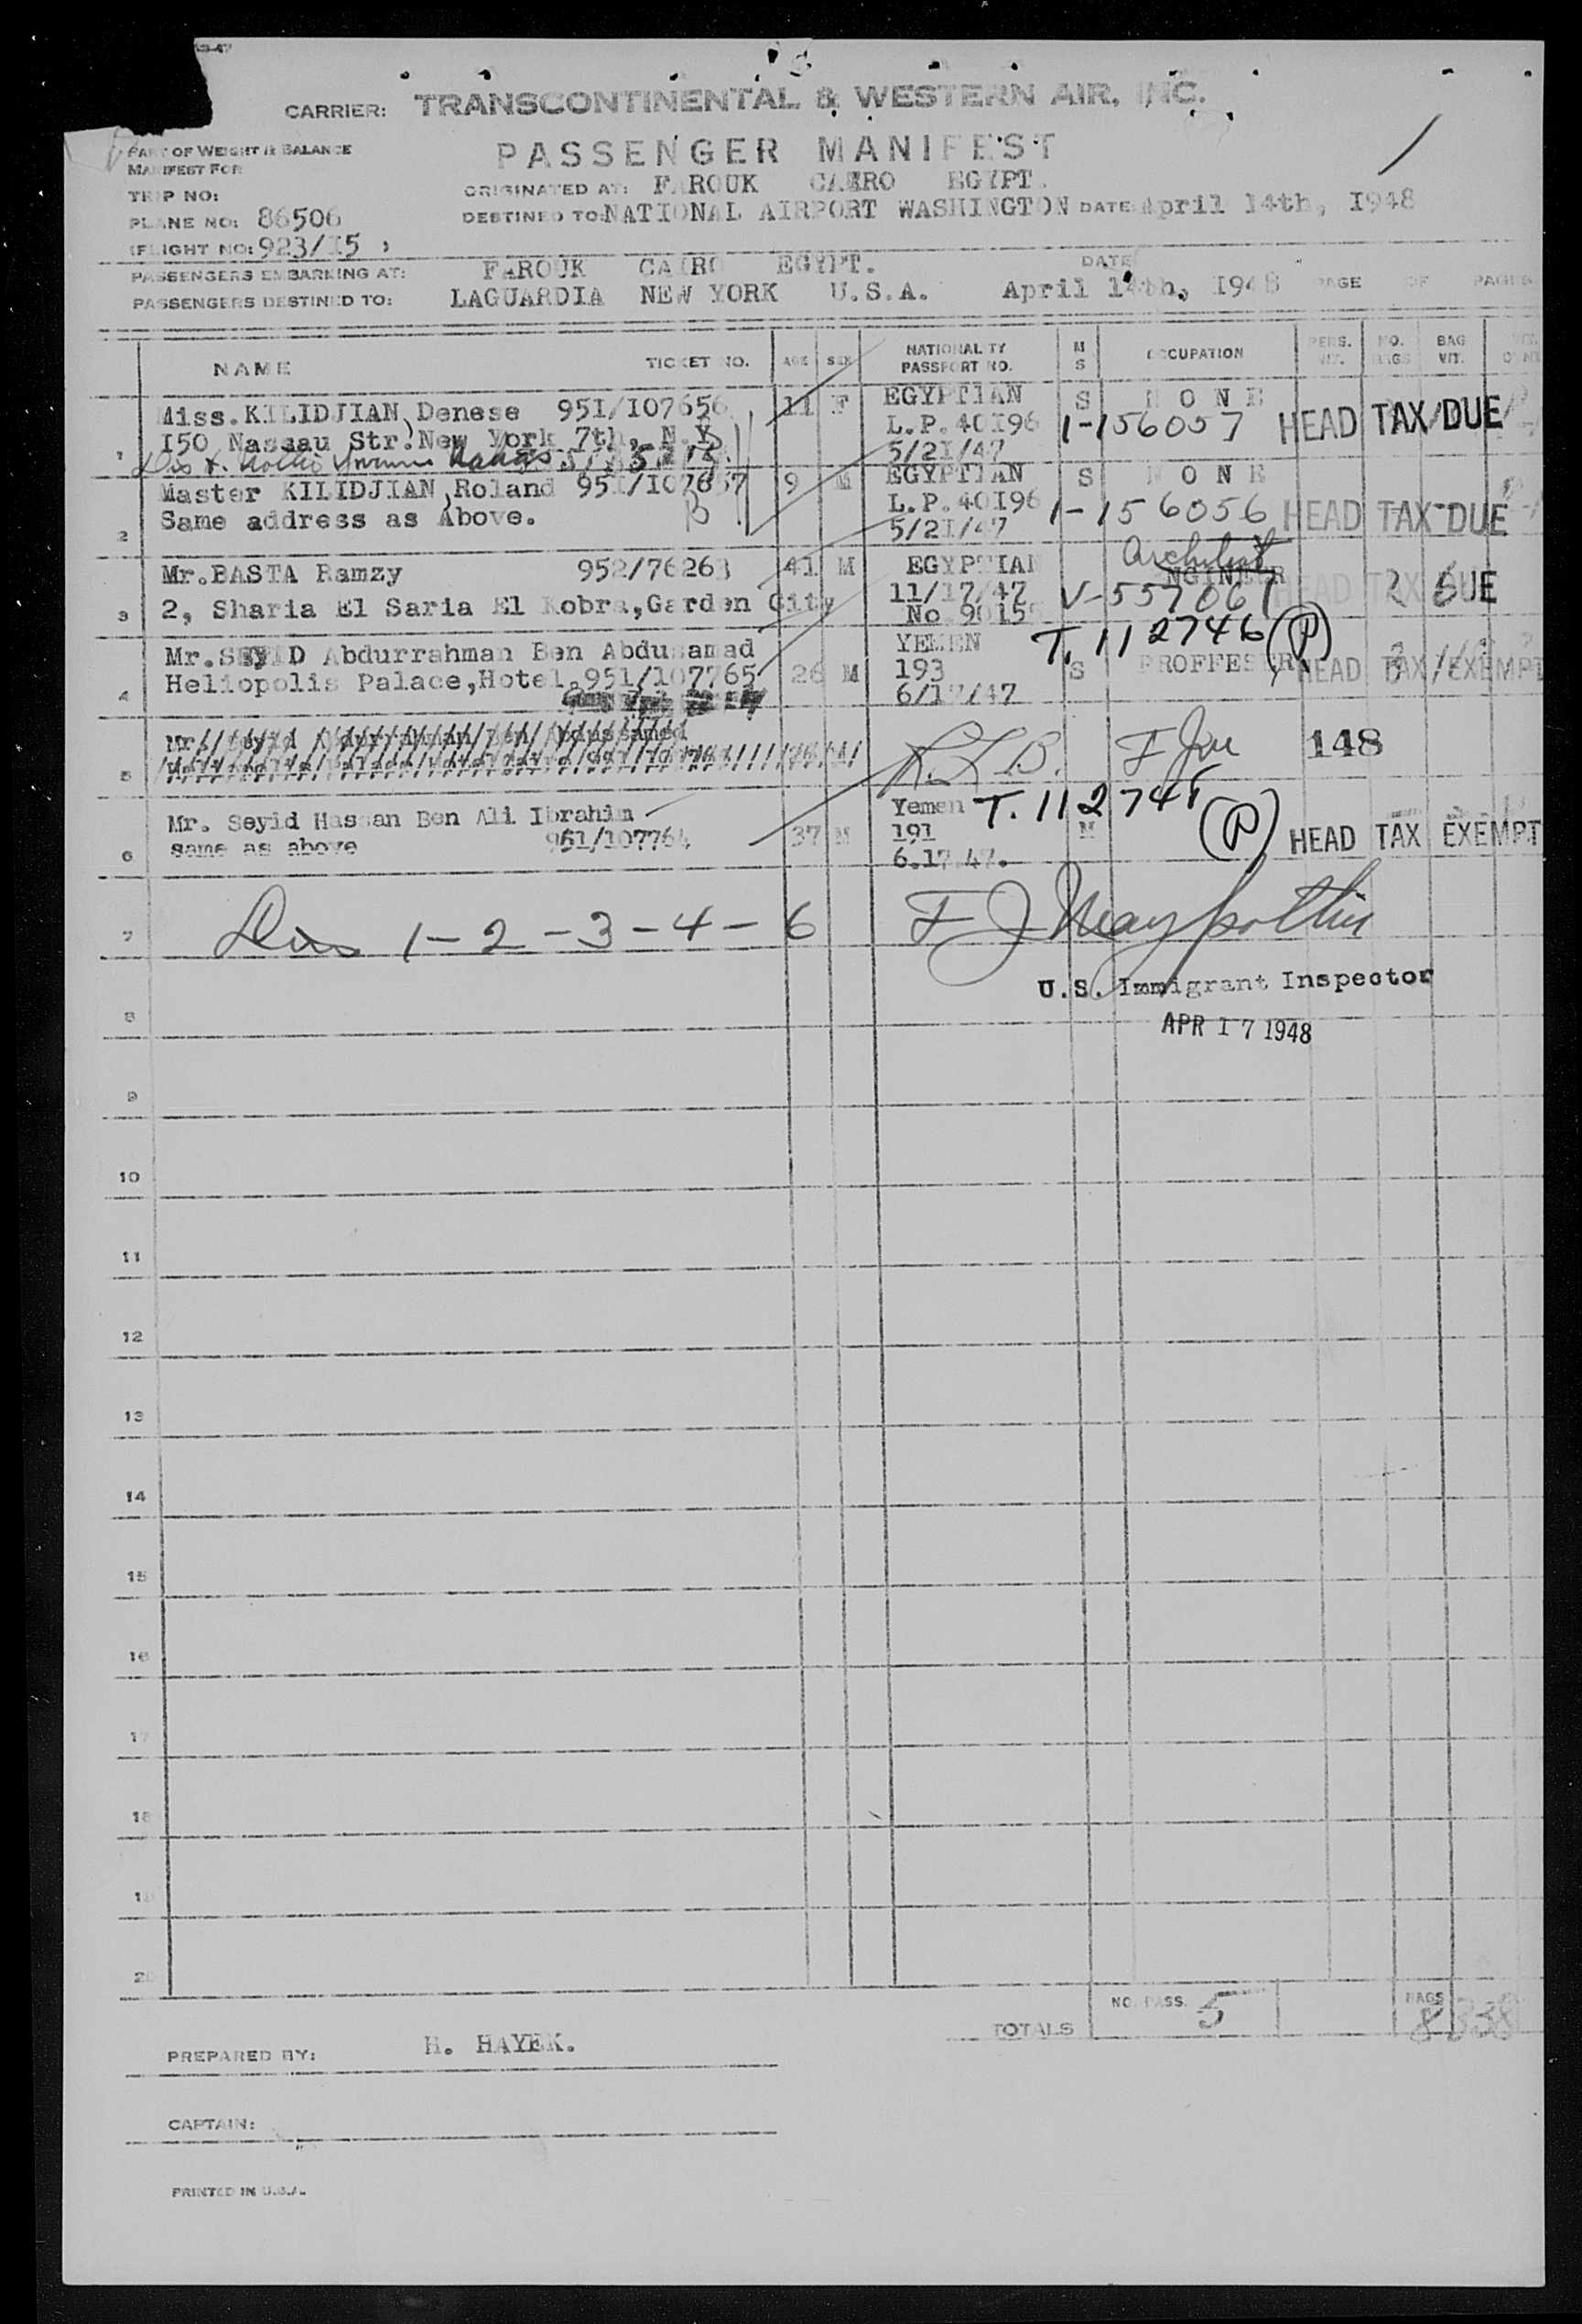 CARRIER: TRANSCONTINENTAL & WESTERN AIR, INC.
PASSENGER MANIFEST
PART OF WEIGHT & BALANCE
MANIFEST FOR
TRIP NO:
ORIGINATED AT: FAROUK CAIRO EGYPT.
PLANE NO: 86506
DESTINED TO: NATIONAL AIRPORT WASHINGTON DATE April 14th, 1948
FLIGHT NO: 923/I5
PASSENGERS EMBARKING AT: FAROUK CAIRO EGYPT. DATE
PASSENGERS DESTINED TO: LAGUARDIA NEW YORK U.S.A. April 14th, 1948 PAGE OF PAGES
NAME TICKET NO. AGE SEX NATIONALITY PASSPORT NO. M S OCCUPATION PERS. WT. NO. BAGS BAG WT.
Miss.KILIDJIAN, Denese 95I/I07656 11 F EGYPTIAN S N O N E
I50 Nassau Str.New York 7th, N.Y. L.P.40I96 1-156057 HEAD TAX DUE
1 5/2I/47
Master KILIDJIAN, Roland 95I/I07657 9 M EGYPTIAN S N O N E
Same address as Above. B L.P.40I96 1-156056 HEAD TAX DUE
2 5/2I/47
Mr.BASTA Ramzy 952/76263 41 M EGYPTIAN ENGINEER
11/17/47 V-557067 HEAD TAX DUE
3 2, Sharia El Saria El Kobra,Garden City No 9015
Mr.SEYID Abdurrahman Ben Abdusamad YEMEN T. 112746 (P)
Heliopolis Palace,Hotel.951/107765 26 M 193 S PROFFESER HEAD TAX EXEMPT
4 6/17/47
5 148
Mr. Seyid Hassan Ben Ali Ibrahim Yemen T. 112745 (P)
same as above 951/107764 37 M 191 M HEAD TAX EXEMPT
6 6.17.47.
7 1-2-3-4-6
U.S. Immigrant Inspector
8 APR 17 1948
9
10
11
12
13
14
15
16
17
18
19
20
NO. PASS. 5 BAGS
TOTALS
PREPARED BY: H. HAYEK.
CAPTAIN:
PRINTED IN U.S.A.